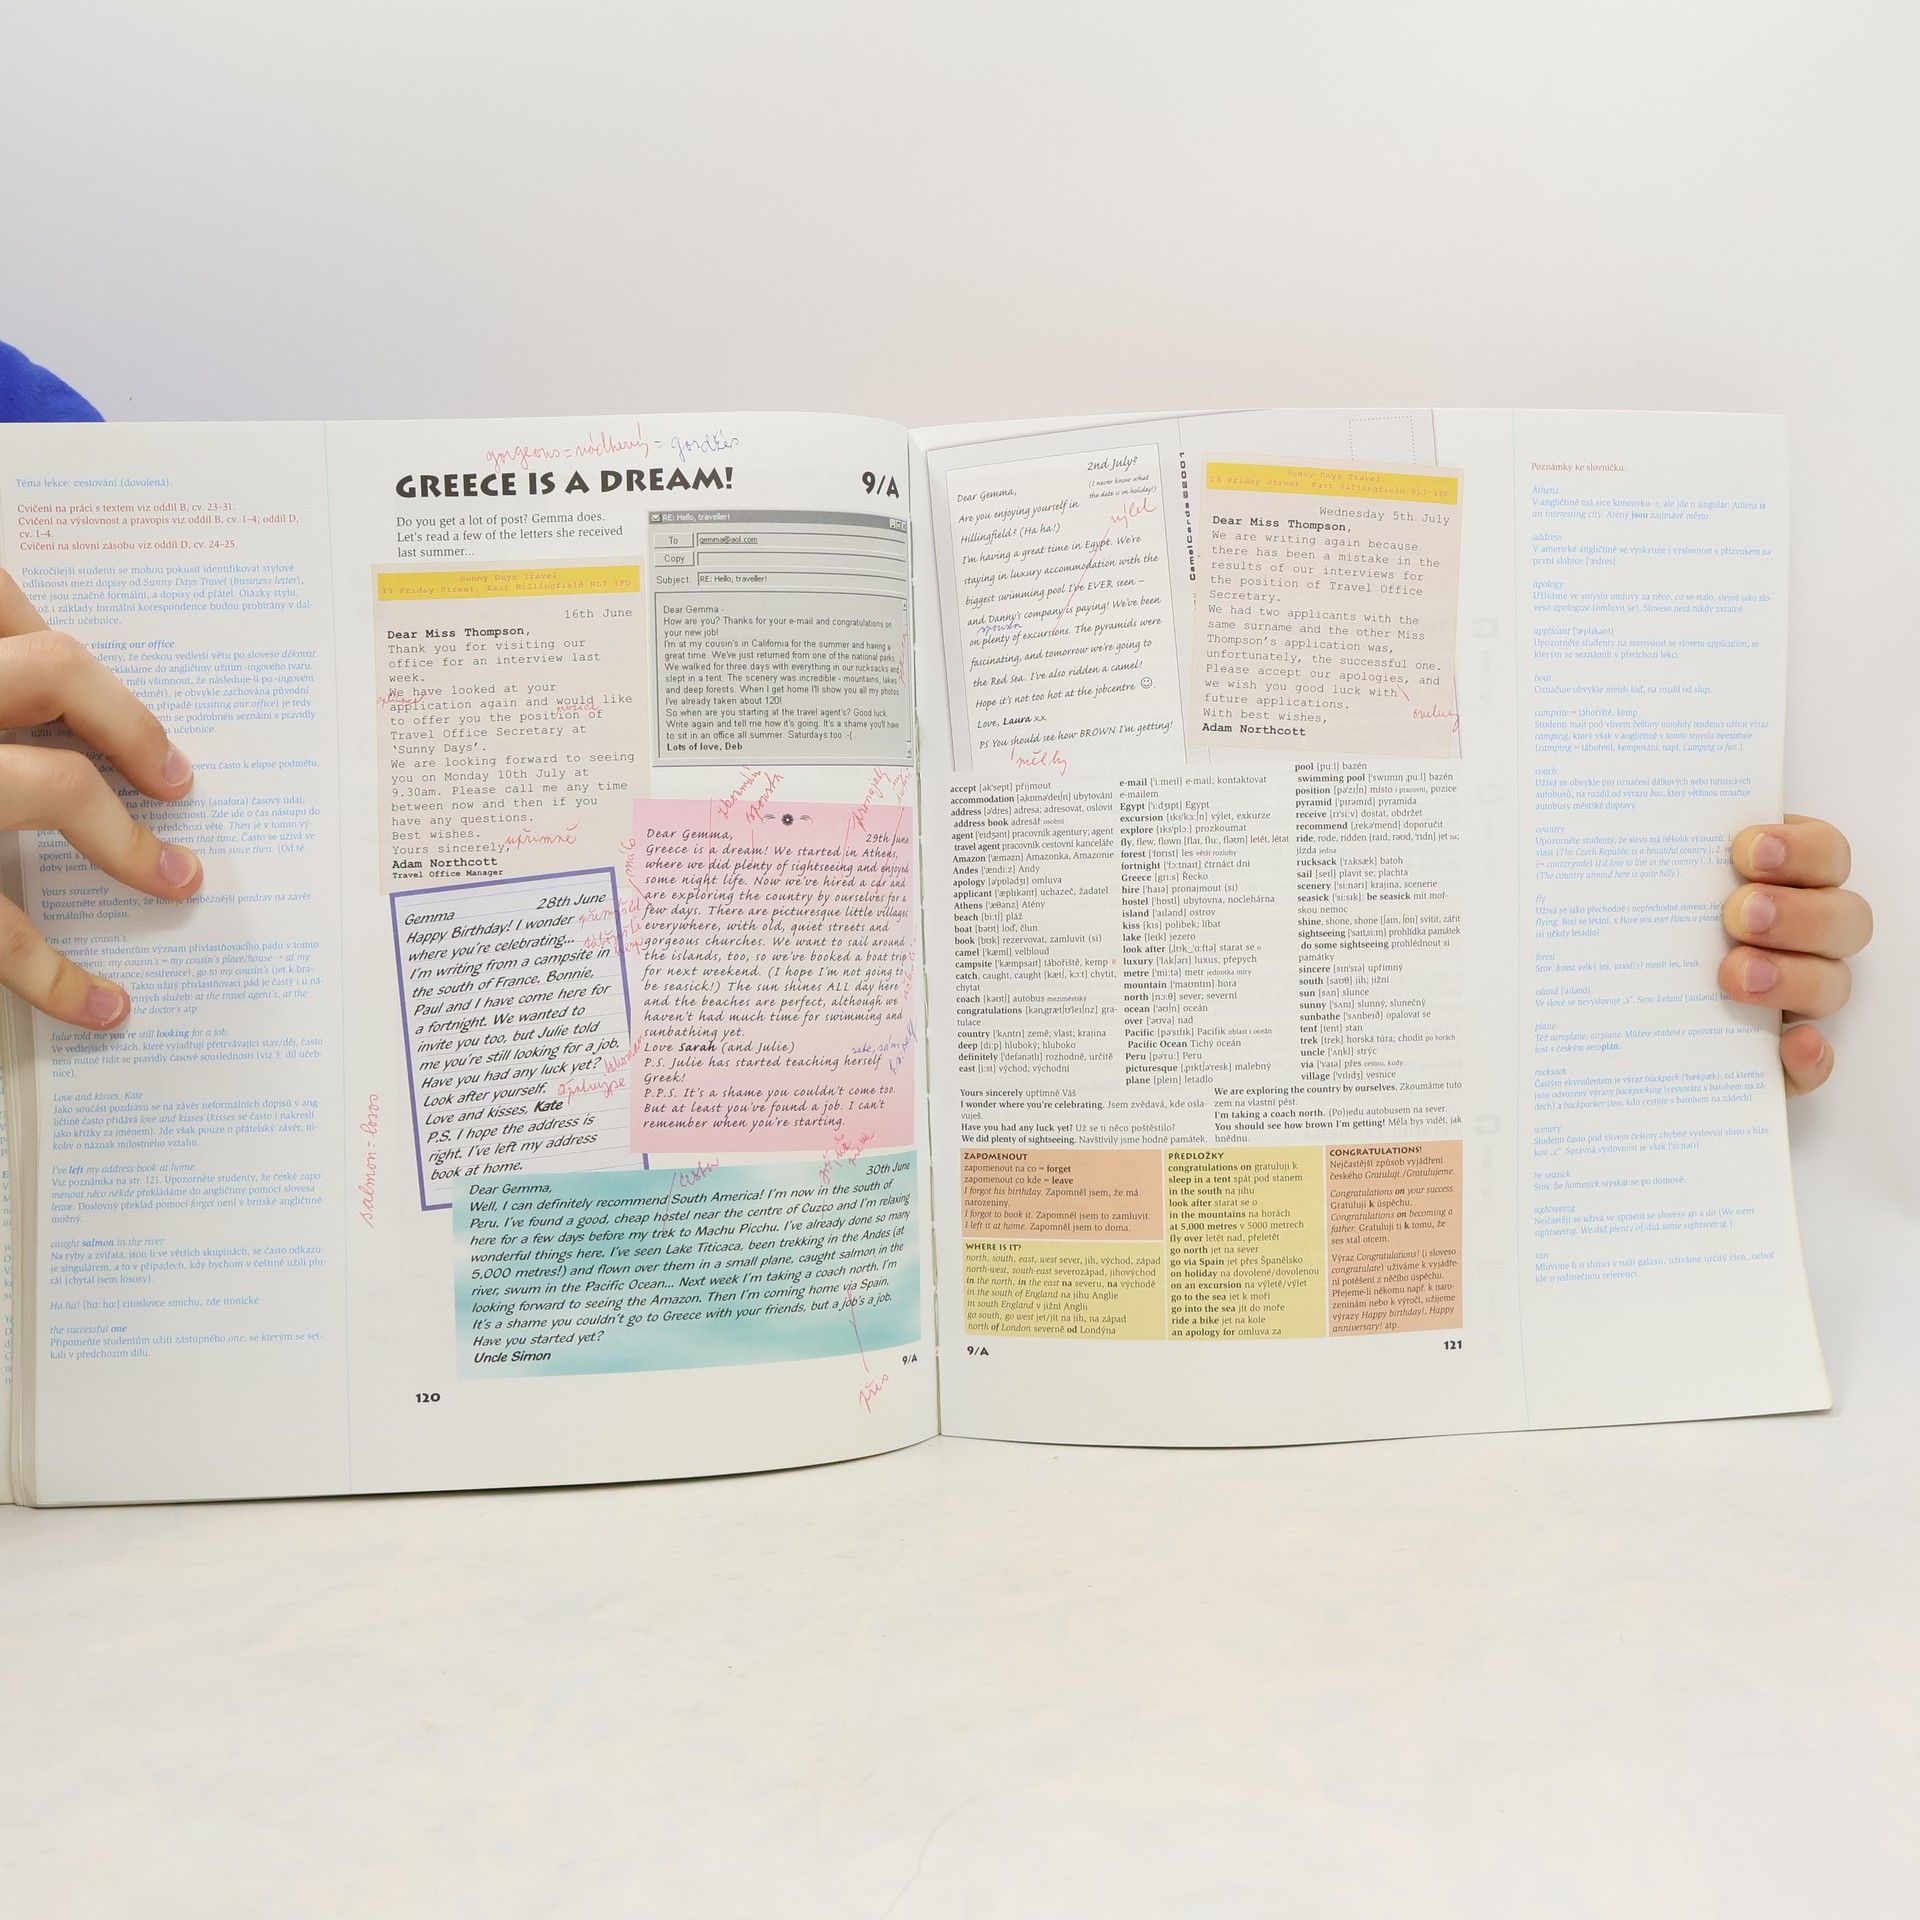 Téma lekce: cestování (dovolená).
Cvičení na práci s textem viz oddíl B, cv. 23–31.
Cvičení na výslovnost a pravopis viz oddíl B, cv. 1–4; oddíl D,
cv. 1–4.
Cvičení na slovní zásobu viz oddíl D, cv. 24–25.
Pokročilejší studenti se mohou pokusit identifikovat stylové
odlišnosti mezi dopisy od Sunny Days Travel (business letter),
které jsou značně formální, a dopisy od přátel. Otázky stylu,
i základy formální korespondence budou probírány v dal-
dílech učebnice.
visiting our office
Yours sincerely
formálního dopisu.
I'm at my cousin's
Julie told me you're still looking for a job.
Ve vedlejších větách, které vyjadřují přetrvávající stav/děj, často
není nutné řídit se pravidly časové souslednosti (viz 3. díl učeb-
nice).
Love and kisses, Kate
Jako součást pozdravu se na závěr neformálních dopisů v ang-
ličtině často přidává love and kisses (kisses se často i nakreslí
jako křížky za jménem). Jde však pouze o přátelský závěr, ni-
koliv o náznak milostného vztahu.
I've left my address book at home.
Viz poznámka na str. 121. Upozorněte studenty, že české zapo-
menout něco někde překládáme do angličtiny pomocí slovesa
leave. Doslovný překlad pomocí forget není v britské angličtině
možný.
caught salmon in the river
Na ryby a zvířata, jsou-li ve větších skupinách, se často odkazu-
je singulárem, a to v případech, kdy bychom v češtině užili plu-
rál (chytal jsem lososy).
Ha ha! [hɑ: hɑ:] citoslovce smíchu, zde ironické
the successful one
Připomeňte studentům užití zástupného one, se kterým se set-
kali v předchozím dílu.
gorgeous = nádherný = gordžes
GREECE IS A DREAM!
9/A
Do you get a lot of post? Gemma does.
Let's read a few of the letters she received
last summer...
Sunny Days Travel
13 Friday Street, East Hillingfield RL7 1FD
16th June
Dear Miss Thompson,
Thank you for visiting our
office for an interview last
week.
We have looked at your
application again and would like
to offer you the position of
Travel Office Secretary at
'Sunny Days'.
We are looking forward to seeing
you on Monday 10th July at
9.30am. Please call me any time
between now and then if you
have any questions.
Best wishes.
Yours sincerely, upřímně
Adam Northcott
Travel Office Manager
RE: Hello, traveller!
To gemma@aol.com
Copy
Subject: RE: Hello, traveller!
Dear Gemma -
How are you? Thanks for your e-mail and congratulations on
your new job!
I'm at my cousin's in California for the summer and having a
great time. We've just returned from one of the national parks.
We walked for three days with everything in our rucksacks and
slept in a tent. The scenery was incredible - mountains, lakes
and deep forests. When I get home I'll show you all my photos
I've already taken about 120!
So when are you starting at the travel agent's? Good luck
Write again and tell me how it's going. It's a shame you'll have
to sit in an office all summer. Saturdays too :-(.
Lots of love, Deb
28th June
Gemma
Happy Birthday! I wonder
where you're celebrating...
I'm writing from a campsite in
the south of France. Bonnie,
Paul and I have come here for
a fortnight. We wanted to
invite you too, but Julie told
me you're still looking for a job.
Have you had any luck yet?
Look after yourself.
Love and kisses, Kate
P.S. I hope the address is
right. I've left my address
book at home.
Dear Gemma,
29th June
Greece is a dream! We started in Athens,
where we did plenty of sightseeing and enjoyed
some night life. Now we've hired a car and
are exploring the country by ourselves for a
few days. There are picturesque little villages
everywhere, with old, quiet streets and
gorgeous churches. We want to sail around
the islands, too, so we've booked a boat trip
for next weekend. (I hope I'm not going to
be seasick!) The sun shines ALL day here
and the beaches are perfect, although we
haven't had much time for swimming and
sunbathing yet.
Love Sarah (and Julie)
P.S. Julie has started teaching herself
Greek!
P.P.S. It's a shame you couldn't come too.
But at least you've found a job. I can't
remember when you're starting.
30th June
Dear Gemma,
Well, I can definitely recommend South America! I'm now in the south of
Peru. I've found a good, cheap hostel near the centre of Cuzco and I'm relaxing
here for a few days before my trek to Machu Picchu. I've already done so many
wonderful things here. I've seen Lake Titicaca, been trekking in the Andes (at
5,000 metres!) and flown over them in a small plane, caught salmon in the
river, swum in the Pacific Ocean... Next week I'm taking a coach north. I'm
looking forward to seeing the Amazon. Then I'm coming home via Spain.
It's a shame you couldn't go to Greece with your friends, but a job's a job.
Have you started yet?
Uncle Simon
salmon = losos
přes
9/A
120
2nd July?
(I never know what
the date is on holiday!)
Dear Gemma,
Are you enjoying yourself in
Hillingfield? (Ha ha!)
výlet
I'm having a great time in Egypt. We're
staying in luxury accommodation with the
biggest swimming pool I've EVER seen –
and Danny's company is paying! We've been
on plenty of excursions. The pyramids were
fascinating, and tomorrow we're going to
the Red Sea. I've also ridden a camel!
Hope it's not too hot at the jobcentre ☺.
Love, Laura xx
PS You should see how BROWN I'm getting!
Sunny Days Travel
13 Friday Street, East Hillingfield RL7 1FD
Wednesday 5th July
Dear Miss Thompson,
We are writing again because
there has been a mistake in the
results of our interviews for
the position of Travel Office
Secretary.
We had two applicants with the
same surname and the other Miss
Thompson's application was,
unfortunately, the successful one.
Please accept our apologies, and
we wish you good luck with
future applications.
With best wishes,
Adam Northcott
accept [ək'sept] přijmout
accommodation [ə,kɒmə'deɪʃn] ubytování
address [ə'dres] adresa; adresovat, oslovit
address book adresář osobní
agent ['eɪdʒənt] pracovník agentury; agent
travel agent pracovník cestovní kanceláře
Amazon ['æməzn] Amazonka, Amazonie
Andes ['ændi:z] Andy
apology [ə'pɒlədʒi] omluva
applicant ['æplɪkənt] uchazeč, žadatel
Athens ['æθənz] Atény
beach [bi:tʃ] pláž
boat [bəʊt] loď, člun
book [bʊk] rezervovat, zamluvit (si)
camel ['kæml] velbloud
campsite ['kæmpsaɪt] tábořiště, kemp
catch, caught, caught [kætʃ, kɔ:t] chytit,
chytat
coach [kəʊtʃ] autobus meziměstský
congratulations [kən,grætʃʊ'leɪʃnz] gra-
tulace
country ['kʌntri] země, vlast; krajina
deep [di:p] hluboký; hluboko
definitely ['defənətli] rozhodně, určitě
east [i:st] východ; východní
e-mail ['i:meɪl] e-mail; kontaktovat
e-mailem
Egypt ['i:dʒɪpt] Egypt
excursion [ɪks'kɜ:ʃn] výlet, exkurze
explore [ɪks'plɔ:] prozkoumat
fly, flew, flown [flaɪ, flu:, fləʊn] letět, létat
forest ['fɒrɪst] les větší rozlohy
fortnight ['fɔ:tnaɪt] čtrnáct dní
Greece [gri:s] Řecko
hire ['haɪə] pronajmout (si)
hostel ['hɒstl] ubytovna, noclehárna
island ['aɪlənd] ostrov
kiss [kɪs] polibek; líbat
lake [leɪk] jezero
look after [,lʊk_'ɑ:ftə] starat se o
luxury ['lʌkʃəri] luxus, přepych
metre ['mi:tə] metr jednotka míry
mountain ['maʊntɪn] hora
north [nɔ:θ] sever; severní
ocean ['əʊʃn] oceán
over ['əʊvə] nad
Pacific [pə'sɪfɪk] Pacifik oblast i oceán
Pacific Ocean Tichý oceán
Peru [pə'ru:] Peru
picturesque [,pɪktʃə'resk] malebný
plane [pleɪn] letadlo
pool [pu:l] bazén
swimming pool ['swɪmɪŋ ,pu:l] bazén
position [pə'zɪʃn] místo i pracovní, pozice
pyramid ['pɪrəmɪd] pyramida
receive [rɪ'si:v] dostat, obdržet
recommend [,rekə'mend] doporučit
ride, rode, ridden [raɪd, rəʊd, 'rɪdn] jet na;
jízda jedna
rucksack ['rʌksæk] batoh
sail [seɪl] plavit se; plachta
scenery ['si:nəri] krajina, scenerie
seasick ['si:sɪk]: be seasick mít moř-
skou nemoc
shine, shone, shone [ʃaɪn, ʃɒn] svítit, zářit
sightseeing ['saɪtsi:ɪŋ] prohlídka památek
do some sightseeing prohlédnout si
památky
sincere [sɪn'sɪə] upřímný
south [saʊθ] jih; jižní
sun [sʌn] slunce
sunny ['sʌni] slunný, slunečný
sunbathe ['sʌnbeɪð] opalovat se
tent [tent] stan
trek [trek] horská túra; chodit po horách
uncle ['ʌŋkl] strýc
via ['vaɪə] přes cestou, kudy
village ['vɪlɪdʒ] vesnice
Yours sincerely upřímně Váš
I wonder where you're celebrating. Jsem zvědavá, kde osla-
vuješ.
Have you had any luck yet? Už se ti něco poštěstilo?
We did plenty of sightseeing. Navštívily jsme hodně památek.
We are exploring the country by ourselves. Zkoumáme tuto
zem na vlastní pěst.
I'm taking a coach north. (Po)jedu autobusem na sever.
You should see how brown I'm getting! Měla bys vidět, jak
hnědnu.
ZAPOMENOUT
zapomenout na co = forget
zapomenout co kde = leave
I forgot his birthday. Zapomněl jsem, že má
narozeniny.
I forgot to book it. Zapomněl jsem to zamluvit.
I left it at home. Zapomněl jsem to doma.
WHERE IS IT?
north, south, east, west sever, jih, východ, západ
north-west, south-east severozápad, jihovýchod
in the north, in the east na severu, na východě
in the south of England na jihu Anglie
in south England v jižní Anglii
go south, go west jet/jít na jih, na západ
north of London severně od Londýna
PŘEDLOŽKY
congratulations on gratuluji k
sleep in a tent spát pod stanem
in the south na jihu
look after starat se o
in the mountains na horách
at 5,000 metres v 5000 metrech
fly over letět nad, přeletět
go north jet na sever
go via Spain jet přes Španělsko
on holiday na dovolené/dovolenou
on an excursion na výletě/výlet
go to the sea jet k moři
go into the sea jít do moře
ride a bike jet na kole
an apology for omluva za
CONGRATULATIONS!
Nejčastější způsob vyjádření
českého Gratuluji./Gratulujeme.
Congratulations on your success.
Gratuluji k úspěchu.
Congratulations on becoming a
father. Gratuluji ti k tomu, že
ses stal otcem.
Výraz Congratulations! (i sloveso
congratulate) užíváme k vyjádře-
ní potěšení z něčího úspěchu.
Přejeme-li někomu např. k naro-
zeninám nebo k výročí, užijeme
výrazy Happy birthday!, Happy
anniversary! atp.
9/A
121
Poznámky ke slovníčku.
Athens
V angličtině má sice koncovku -s, ale jde o singulár: Athens is
an interesting city. Atény jsou zajímavé město.
address
V americké angličtině se vyskytuje i výslovnost s přízvukem na
první slabice ['ædres].
apology
Užíváme ve smyslu omluvy za něco, co se stalo, stejně jako slo-
veso apologize (omluvit se). Sloveso není nikdy zvratné.
applicant ['æplɪkənt]
Upozorněte studenty na souvislost se slovem application, se
kterým se seznámili v předchozí lekci.
boat
Označuje obvykle menší loď, na rozdíl od ship.
campsite = tábořiště, kemp
Studenti mají pod vlivem češtiny mnohdy tendenci užívat výraz
camping, který však v angličtině v tomto smyslu neexistuje
(camping = táboření, kempování; např. Camping is fun.).
coach
Užívá se obvykle pro označení dálkových nebo turistických
autobusů, na rozdíl od výrazu bus, který většinou označuje
autobusy městské dopravy.
country
fly
forest
Srov. forest velký les, wood(s) menší les, lesík.
island ['aɪlənd]
plane
Též aeroplane, airplane. Můžete studenty upozornit na souvis-
lost s českým aeroplán.
rucksack
Častým ekvivalentem je výraz backpack ['bækpæk], od kterého
jsou odvozeny výrazy backpacking (cestování s batohem na zá-
dech) a backpacker (ten, kdo cestuje s batohem na zádech).
scenery
Studenti často pod vlivem češtiny chybně vyslovují slovo s hlás-
kou „c“. Správná výslovnost je však ['si:nəri]
be seasick
Srov. be homesick stýskat se po domově.
sightseeing
Nejčastěji se užívá ve spojení se slovesy go a do (We went
sightseeing. We did plenty of/did some sightseeing.).
sun
Mluvíme-li o slunci v naší galaxii, užíváme určitý člen, neboť
jde o jedinečnou referenci